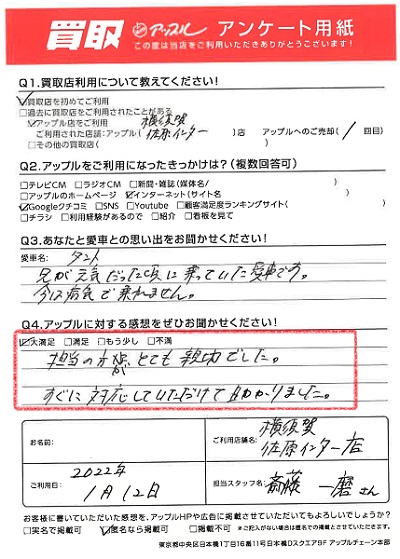 買取 アップル アンケート用紙
この度は当店をご利用いただきありがとうございます!
Q1.買取店利用について教えてください!
☑買取店を初めてご利用
□過去に買取店をご利用されたことがある
☑アップル店をご利用 横須賀
ご利用された店舗:アップル( 佐原インター )店 アップルへのご売却( 1 回目)
□その他の買取店( )
Q2.アップルをご利用になったきっかけは?(複数回答可)
□テレビCM □ラジオCM □新聞・雑誌(媒体名/ )
□アップルのホームページ ☑インターネット(サイト名 )
☑Googleクチコミ □SNS □Youtube □顧客満足度ランキングサイト( )
□チラシ □利用経験があるので □紹介 □看板を見て
Q3.あなたと愛車との思い出をお聞かせください!
愛車名: タント
兄が元気だった頃に乗っていた愛車です。
今は病気で乗れません。
Q4.アップルに対する感想をぜひお聞かせください!
☑大満足 □満足 □もう少し □不満
担当の方が とても親切でした。
すぐに対応していただけて助かりました。
お名前:
ご利用店舗名: 横須賀
佐原インター店
ご利用日: 2022年
1月12日
担当スタッフ名: 斎藤 一磨さん
お客様に書いていただいた感想を、アップルHPや広告に掲載させていただいてもよろしいでしょうか?
□実名で掲載可 ☑匿名なら掲載可 □掲載不可 ※ご記入がない場合は匿名での掲載とさせていただきます。
東京都中央区日本橋1丁目16番11号日本橋Dスクエア9F アップルチェーン本部